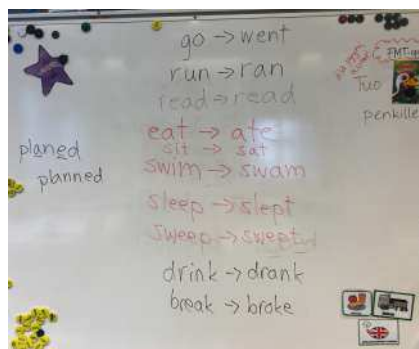 go → went
run → ran
read → read
eat → ate
sit → sat
swim → swam
sleep → slept
sweep → swept
drink → drank
break → broke
planed
planned
penkille